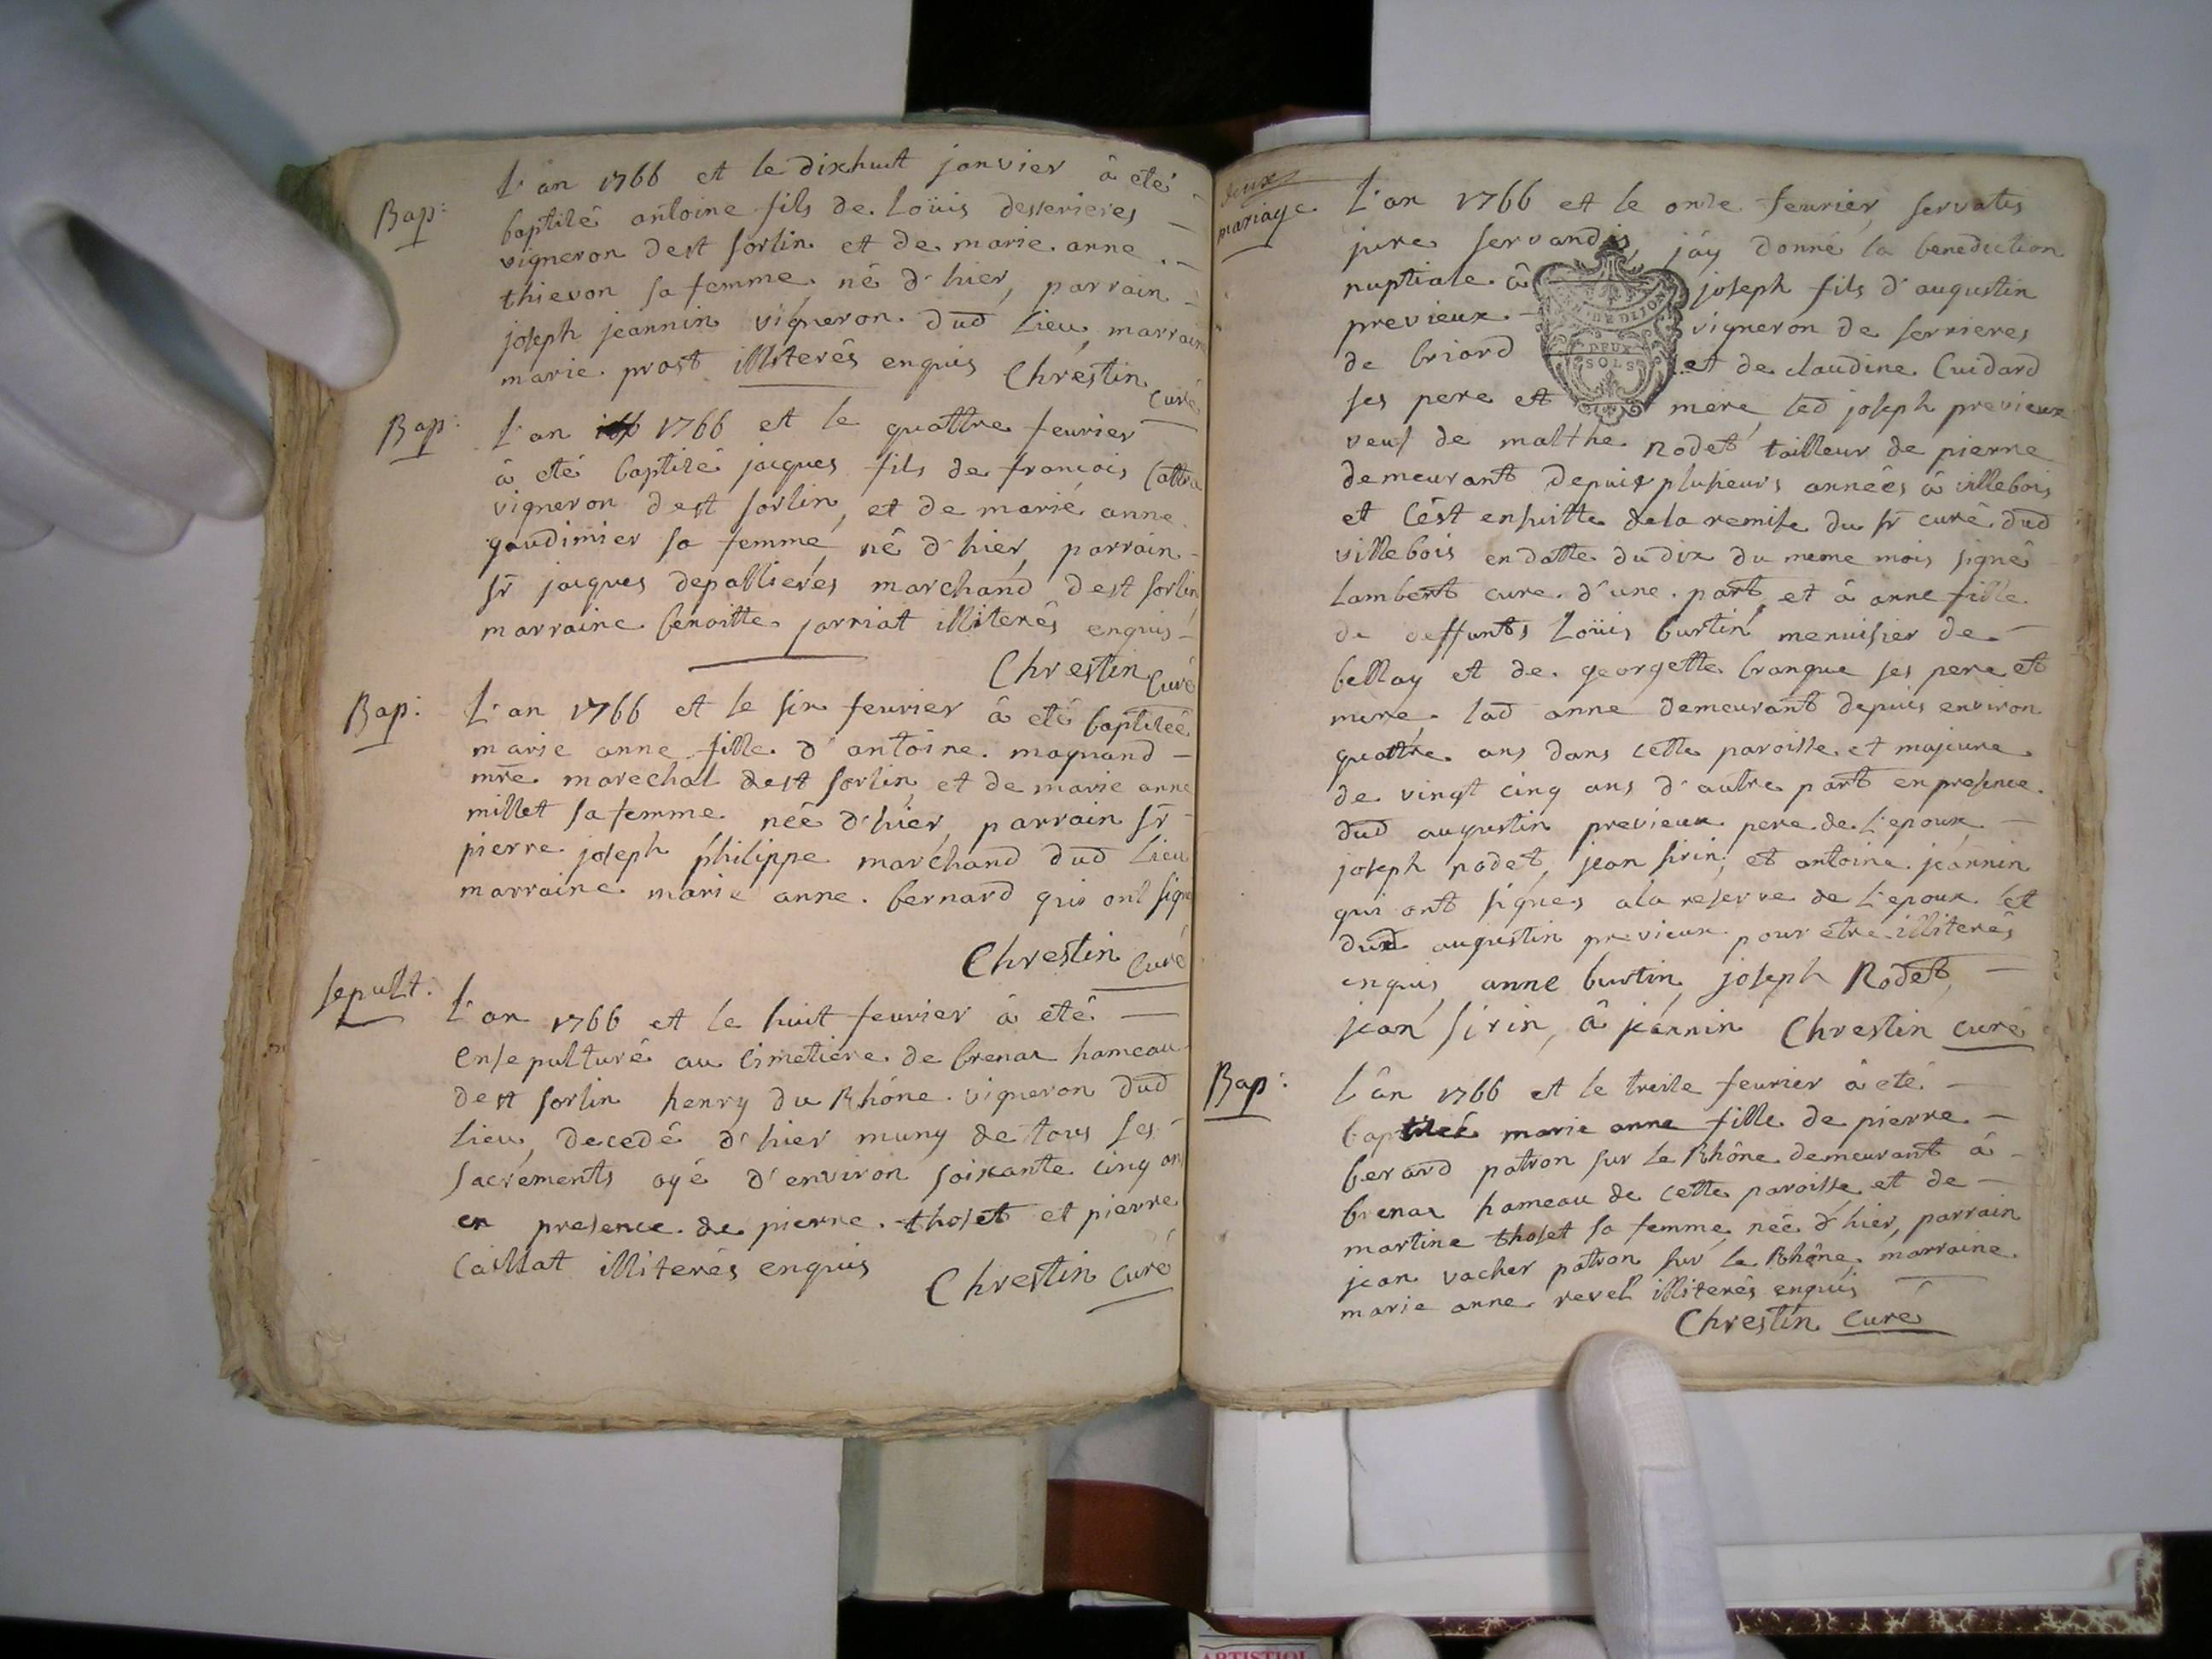 Bap:
L'an 1766 et le dixhuit janvier à eté
baptisé antoine fils de Loüis desserieres
vigneron dest sorlin et de marie anne
thievon sa femme, né d'hier, parrain
joseph jeannin vigneron dud lieu, marraine
marie prost illiterés enquis Chrestin
curé
Bap:
L'an 1766 et le quattre feurier
à eté baptisé jacques fils de francois Cattra
vigneron dest sorlin, et de marie anne
gaudimier sa femme, né d'hier, parrain
sr jacques depallieres marchand dest sorlin
marraine benoitte jarriat illiterés enquis
Chrestin curé
Bap:
L'an 1766 et le six feurier à eté baptiseé
marie anne fille d'antoine magnand
mre marechal dest sorlin, et de marie anne
millet sa femme neé d'hier, parrain sr
pierre joseph philippe marchand dud lieu
marraine marie anne bernard qui ont signé
Chrestin curé
sepult.
L'an 1766 et le huit feurier à eté
ensepulturé au cimetiere de brenaz hameau
dest sorlin henry du Rhône vigneron dud
lieu, decedé d'hier muny de tous ses
sacrements agé d'environ soixante cinq an
en presence de pierre thoset et pierre
Caillat illiterés enquis
Chrestin curé
deux
mariage
L'an 1766 et le onze feurier, servatis
jure servandis, jáy donné la benediction
nuptiale à joseph fils d'augustin
previeux vigneron de serrieres
de briord et de claudine Cuidard
ses pere et mere led joseph previeux
veuf de malthe Rodet tailleur de pierre
demeurant depuis plusieurs années à villebois
et c'est ensuitte de la remise du sr curé dud
villebois en datte du dix du meme mois signé
Lambert cure d'une part, et à anne fille
de deffunts Loüis burtin menuisier de
bellay et de georgette branque ses pere et
mere, lad anne demeurant depuis environ
quattre ans dans cette paroisse et majeure
de vingt cinq ans d'autre part en presence
dud augustin previeux pere de l'epoux
joseph rodet, jean sirin, et antoine jeannin
qui ont signes a la reserve de l'epoux et
dud augustin previeux pour etre illiterés
enquis, anne burtin, joseph Rodet,
jean sirin, â jeannin Chrestin curé
DE DIJON
DEUX
SOLS
Bap:
L'ân 1766 et le treise feurier à eté
baptiseé marie anne fille de pierre
berard patron sur le Rhône demeurant à
brenaz hameau de cette paroisse et de
martine thoset sa femme, neé d'hier, parrain
jean vacher patron sur le Rhône, marraine
marie anne revel illiterés enquis
Chrestin curé
ARTISTIQU